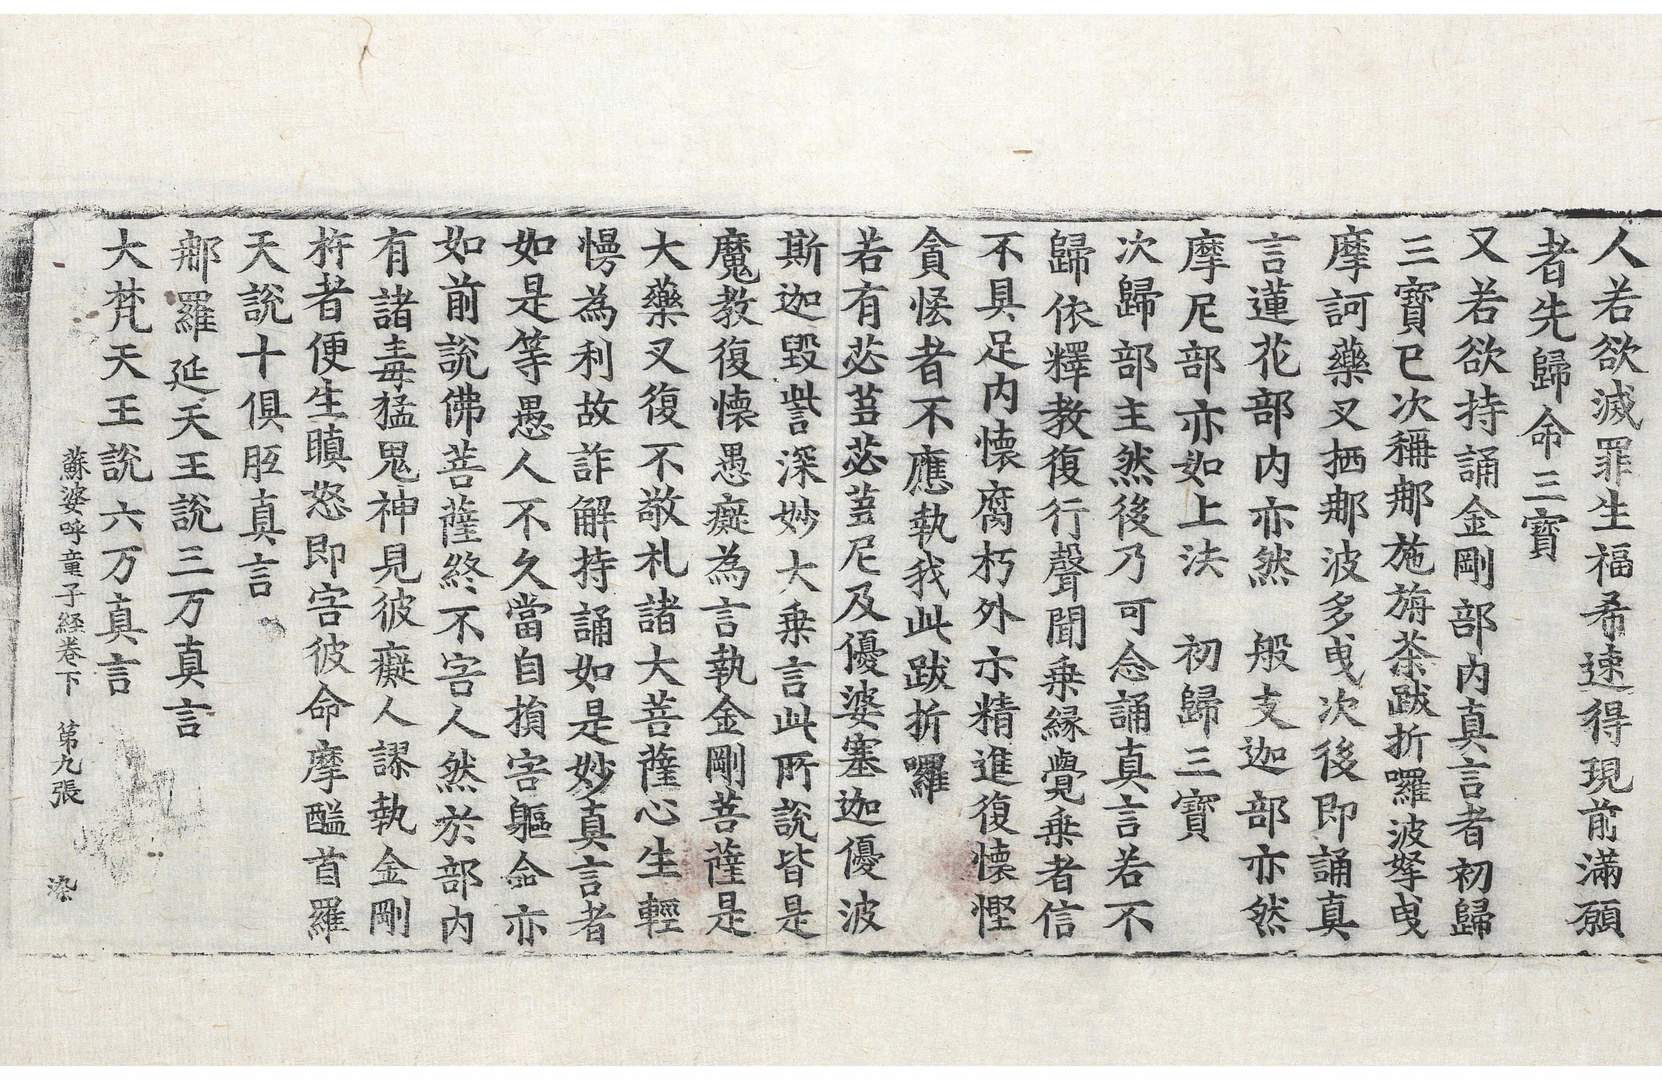 人若欲滅罪生福希速得現前滿願
者先歸命三寶
又若欲持誦金剛部內真言者初歸
三寶已次稱那施旃茶跋折囉波拏曳
摩訶藥叉栖那波多曳次後即誦真
言蓮花部內亦然　般支迦部亦然
摩尼部亦如上法　初歸三寶
次歸部主然後乃可念誦真言若不
歸依釋教復行聲聞乗緣覺乗者信
不具足內懐腐朽外亦精進復懐慳
貪恡者不應執我此跋折囉
若有苾蒭苾蒭尼及優婆塞迦優波
斯迦毀訾深妙大乗言此所說皆是
魔教復懐愚癡為言執金剛菩薩是
大藥叉復不敬礼諸大菩薩心生輕
慢為利故詐解持誦如是妙真言者
如是等愚人不久當自損害軀命亦
如前說佛菩薩終不害人然於部內
有諸毒猛鬼神見彼癡人謬執金剛
杵者便生瞋怒即害彼命摩醯首羅
天說十俱胝真言
那羅延天王說三万真言
大梵天王說六万真言
蘇婆呼童子経卷下　第九張　染